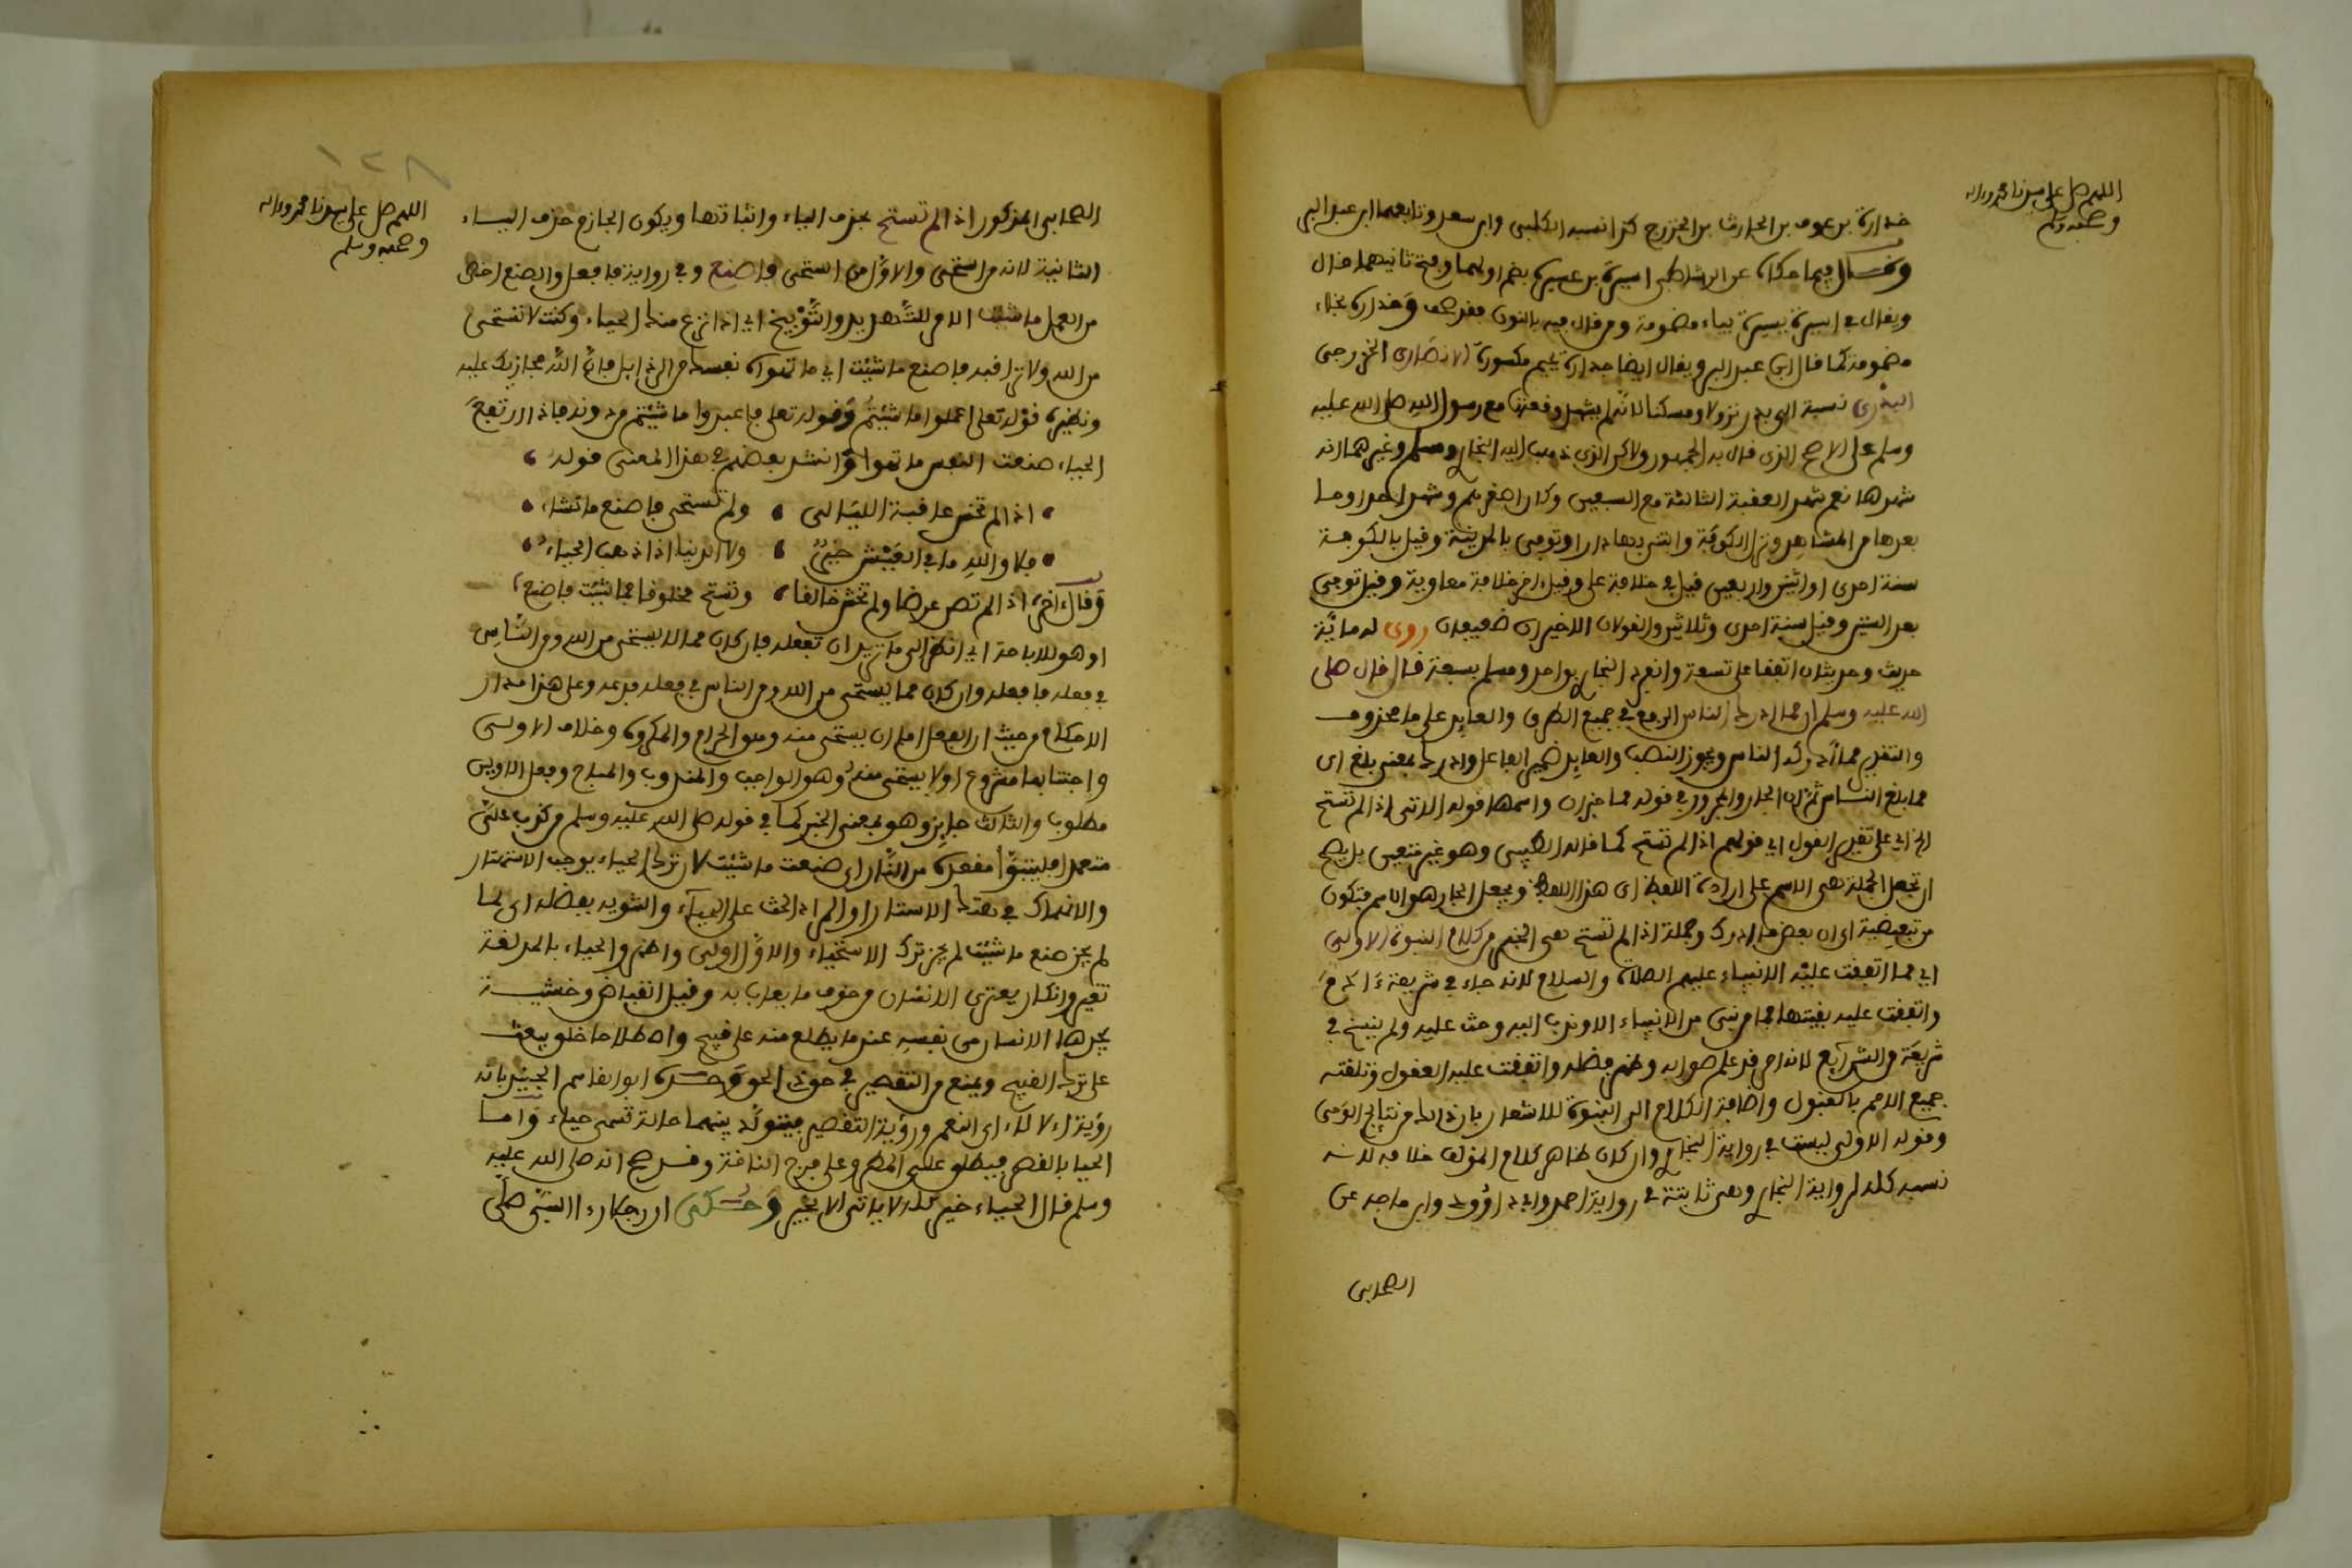 اللهم صل على سيدنا محمد وءاله
وصحبه وسلم
خدارة بن عوف بن الحارث بن الخزرج كذا نسبه الكلبي وابن سعد وتابعهما ابن عبد البر
فيما حكاه عن الرشاطي اسيرة بن عسيرة بضم اولهما وفتح ثانيهما قال
ويقال في اسيرة يسيرة بياء مضمومة ومن قال فيه بالنون فقد صحف وخدارة بخاء
مضمومة كما قال ابن عبد البر ويقال ايضا جدارة بجيم مكسورة الانصارى الخزرجى
البدرى نسبة الى بدر نزولا ومسكنا لانه لم يشهد وقعتها مع رسول الله صلى الله عليه
وسلم على الاصح الذى قال به الجمهور ولاكن الذى ذهب اليه البخارى ومسلم وغيرهما انه
شهدها نعم شهد العقبة الثالثة مع السبعين وكان اصغرهم وشهد احدا وما
بعدها من المشاهد ونزل الكوفة وابتنى بها دارا وتوفى بالمدينة وقيل بالكوفة
سنة احدى او اثنين واربعين قيل فى خلافة على وقيل اخر خلافة معاوية وقيل توفى
بعد الستين وقيل سنة احدى وثلاثين والقولان الاخيران ضعيفان روى له مائة
حديث وحديثان اتفقا على تسعة وانفرد البخارى بواحد ومسلم بسبعة قال قال صلى
الله عليه وسلم ان مما ادرك الناس الرفع فى جميع الطرق والعايد على ما محذوف
والتقدير مما ادركه الناس ويجوز النصب والعايد ضمير الفاعل وادرك بمعنى بلغ اى
مما بلغ الناس ثم ان الجار والمجرور فى قوله مما خبر ان واسمها قوله الاتى اذا لم تستح
الخ اى على تقدير القول اي قولهم اذا لم تستح كما قاله الطيبى وهو غير متعين بل يصح
ان تجعل الجملة هى الاسم على ارادة اللفظ اى هذا اللفظ ويجعل الجار هو الاسم فتكون
من تبعيضية اى ان بعض ما ادرك وجملة اذا لم تستح هى الخبر من كلام النبوة الاولى
اى مما اتفقت عليه الانبياء عليهم الصلاة والسلام لانه جاء فى شريعة ءادم
واتفقت عليه بقيتها فما من نبى من الانبياء الا وندب اليه وحث عليه ولم ينسخ فى
شريعة من الشرائع لانه امر قد علم صوابه وظهر فضله واتفقت عليه العقول وتلقته
جميع الامم بالقبول واضافة الكلام الى النبوة للاشعار بان ذلك من نتايج الوحى
وقوله الاولى ليست فى رواية البخارى وان كان ظاهر كلام المؤلف خلافه لانه
نسبه كله لرواية البخارى وهى ثابتة فى رواية احمد وابى داوود وابن ماجه عن
الصحابى
١٢٨
اللهم صل على سيدنا محمد وءاله
وصحبه وسلم
الصحابى المذكور اذا لم تستح بحذف الياء واثباتها ويكون الجازم حذف الياء
الثانية لانه من استحيى والاول من استحى فاصنع وفى رواية فافعل والصنع اخص
من العمل ما شئت الامر للتهديد والتوبيخ اى اذا نزع منك الحياء وكنت لا تستحى
من الله ولا تراقبه فاصنع ما شئت اى ما تهواه نفسك من الرذايل فان الله مجازيك عليه
ونظيره قوله تعلى اعملوا ما شئتم وقوله تعلى فاعبدوا ما شئتم من دونه فاذا ارتفع
الحياء صنعت النفس ما تهوا وانشد بعضهم فى هذا المعنى قوله
اذا لم تخش عاقبة الليالى ولم تستحى فاصنع ما تشاء
فلا والله ما فى العيش خير ولا الدنيا اذا ذهب الحياء
وقال ءاخر اذا لم تصن عرضا ولم تخش خالقا وتستح مخلوقا فما شئت فاصنع
او هو للاباحة اى انظر الى ما تريد ان تفعله فان كان مما لا يستحى من الله ومن الناس
فى فعله فافعله وان كان مما يستحى من الله ومن الناس فى فعله فدعه وعلى هذا مدار
الاحكام من حيث ان الفعل اما ان يستحى منه وهو الحرام والمكروه وخلاف الاولى
واجتنابها مشروع او لا يستحى منه وهو الواجب والمندوب والمباح وفعل الاولين
مطلوب والثالث جايز وهو بمعنى الخبر كما فى قوله صلى الله عليه وسلم من كذب على
متعمدا فليتبوأ مقعده من النار اى صنعت ما شئت لان ترك الحياء يوجب الاستهتار
والانهماك فى هتك الاستار او المراد الحث على الحياء والتنويه بفضله اى لما
لم يجز صنع ما شئت لم يجز ترك الاستحياء والاول اولى واظهر والحياء بالمد لغة
تغير وانكسار يعترى الانسان من خوف ما يعاب به وقيل انقباض وخشية
يجدها الانسان من نفسه عند ما يطلع منه على قبيح واصطلاحا خلق يبعث
على ترك القبيح ويمنع من التقصير فى حق ذى الحق وحده ابو القاسم الجنيد بانه
رؤية الالاء اى النعم ورؤية التقصير فيتولد بينهما حالة تسمى حياء واما
الحيا بالقصر فيطلق على المطر وعلى فرج الناقة وقد صح انه صلى الله عليه
وسلم قال الحياء خير كله لا ياتى الا بخير وحكى ان رجلا رءا النبى صلى